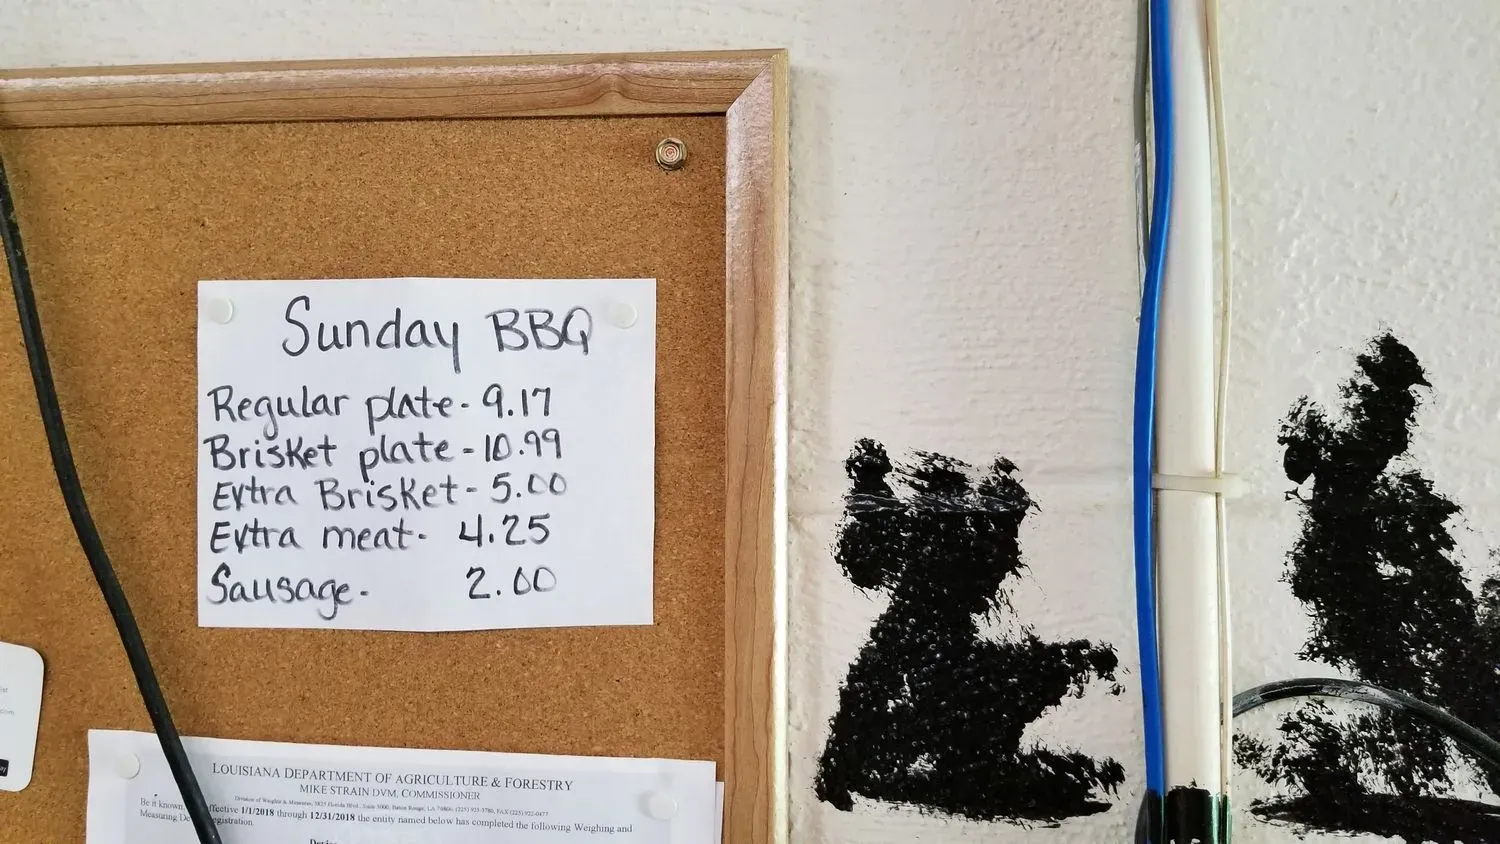 Sunday BBQ
Regular plate - 9.17
Brisket plate - 10.99
Extra Brisket - 5.00
Extra meat - 4.25
Sausage - 2.00
LOUISIANA DEPARTMENT OF AGRICULTURE & FORESTRY
MIKE STRAIN DVM, COMMISSIONER
Division of Weights & Measures, 5825 Florida Blvd., Suite 5000, Baton Rouge, LA 70806 (225) 925-3780, FAX (225) 922-0477
Be it known, effective 1/1/2018 through 12/31/2018 the entity named below has completed the following Weighing and
Measuring registration.